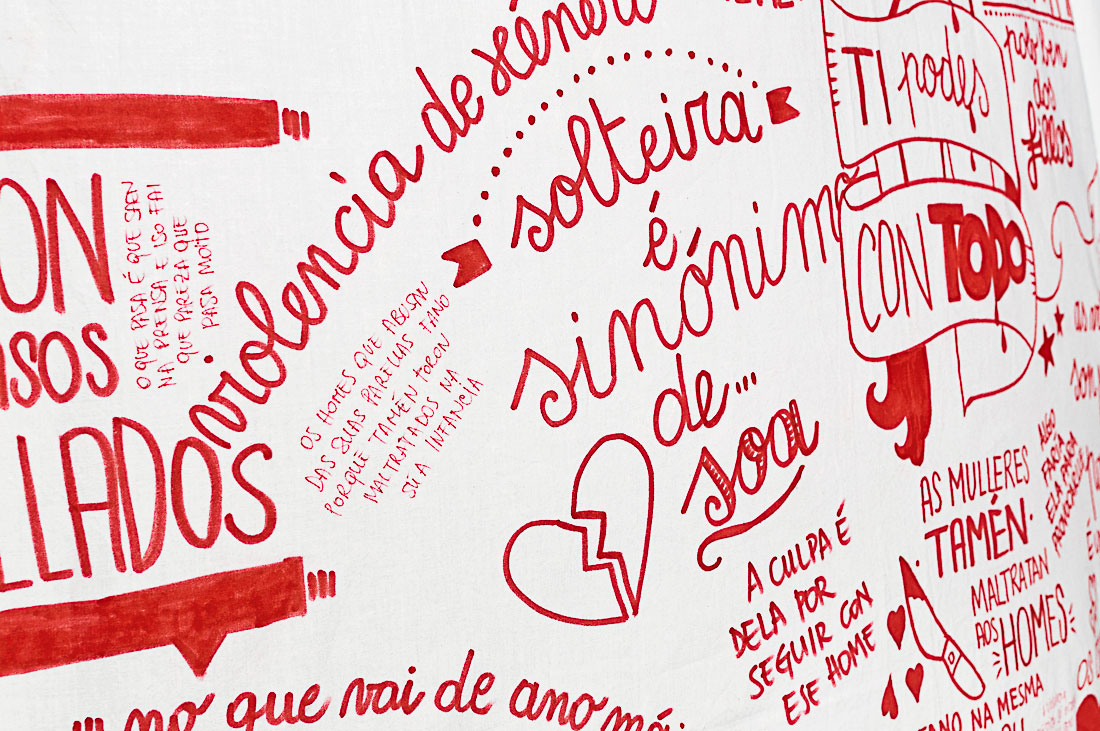 violencia de xénero
TI podes
CON TODO
por ben
dos
fillos
ON
ASOS
LLADOS
O QUE PASA É QUE SAEN
NA PRENSA E ISO FAI
QUE PAREZA QUE
PASA MOITO
OS HOMES QUE ABUSAN
DAS SÚAS PARELLAS TANO
PORQUE TAMÉN FORON
MALTRATADOS NA
SÚA INFANCIA
solteira
é
sinónimo
de...
soa
A CULPA É
DELA POR
SEGUIR CON
ESE HOME
AS MULLERES
TAMÉN
MALTRATAN
AOS HOMES
ALGO
FARÍA
ELA PARA
PROVOCALO
no que vai de ano
NA MESMA